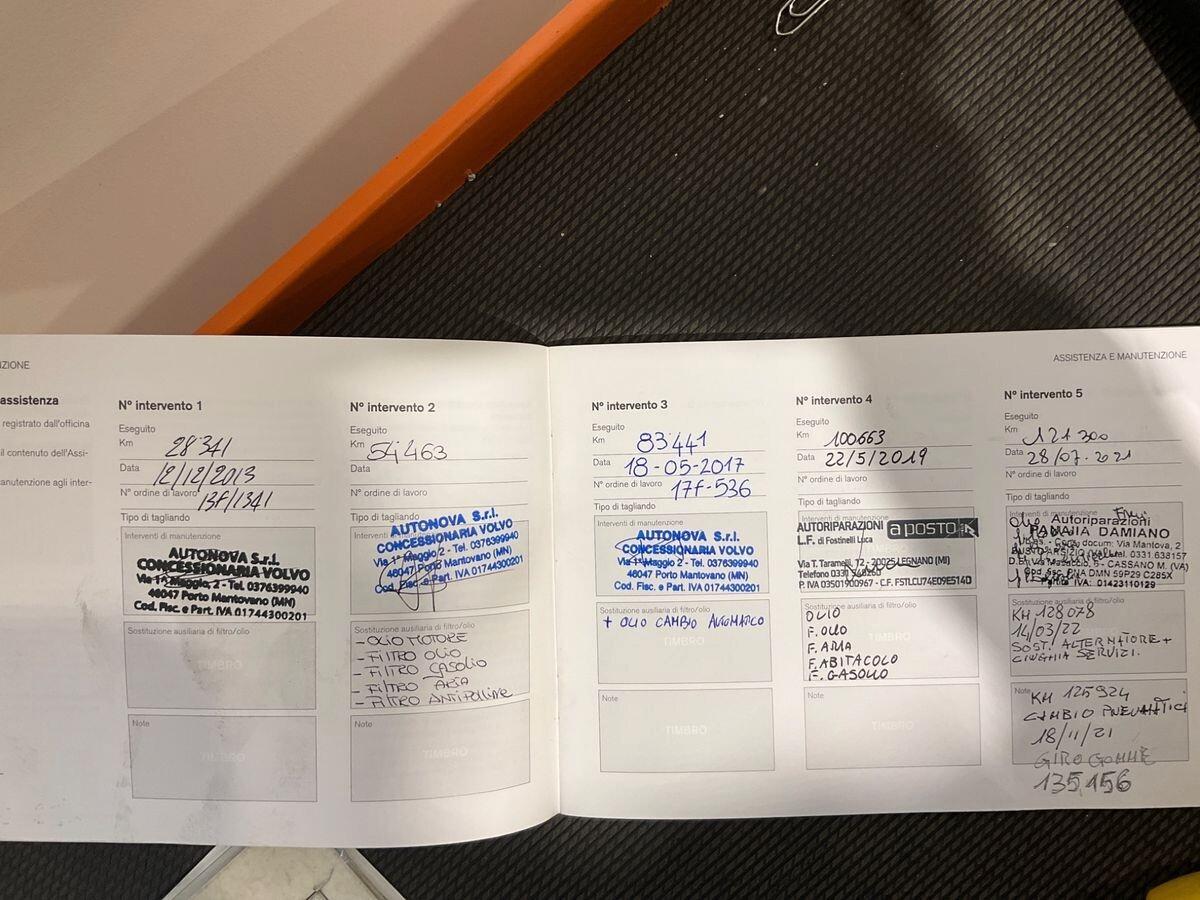 ZIONE
assistenza
registrato dall'officina
il contenuto dell'Assi-
anutenzione agli inter-
N° intervento 1
Eseguito
Km 28'341
Data 12/12/2013
N° ordine di lavoro 13F/1341
Tipo di tagliando
Interventi di manutenzione
AUTONOVA S.r.l.
CONCESSIONARIA VOLVO
Via 1° Maggio, 2 - Tel. 0376399940
46047 Porto Mantovano (MN)
Cod. Fisc. e Part. IVA 01744300201
Sostituzione ausiliaria di filtro/olio
TIMBRO
Note
TIMBRO
N° intervento 2
Eseguito
Km 54'463
Data
N° ordine di lavoro
Tipo di tagliando
Interventi
AUTONOVA S.r.l.
CONCESSIONARIA VOLVO
Via 1° Maggio 2 - Tel. 0376399940
46047 Porto Mantovano (MN)
Cod. Fisc. e Part. IVA 01744300201
Sostituzione ausiliaria di filtro/olio
- OLIO MOTORE
- FILTRO OLIO
- FILTRO GASOLIO
- FILTRO ARIA
- FILTRO ANTIPOLLINE
Note
TIMBRO
ASSISTENZA E MANUTENZIONE
N° intervento 3
Eseguito
Km 83'441
Data 18-05-2017
N° ordine di lavoro 17F-536
Tipo di tagliando
Interventi di manutenzione
AUTONOVA S.r.l.
CONCESSIONARIA VOLVO
Via 1° Maggio 2 - Tel. 0376399940
46047 Porto Mantovano (MN)
Cod. Fisc. e Part. IVA 01744300201
Sostituzione ausiliaria di filtro/olio
+ OLIO CAMBIO AUTOMATICO
TIMBRO
Note
TIMBRO
N° intervento 4
Eseguito
Km 100663
Data 22/5/2019
N° ordine di lavoro
Tipo di tagliando
Interventi di manutenzione
AUTORIPARAZIONI a posto
L.F. di Fostinelli Luca
Via T. Taramelli, 72 - 20025 LEGNANO (MI)
Telefono 0331
P. IVA 03501900967 - C.F. FSTLCU74E09E514D
Sostituzione ausiliaria di filtro/olio
OLIO
F. OLIO
F. ARIA
F. ABITACOLO
F. GASOLIO
TIMBRO
Note
TIMBRO
N° intervento 5
Eseguito
Km 121300
Data 28/07.2021
N° ordine di lavoro
Tipo di tagliando
Interventi di manutenzione
Olio
Autoripara­zioni
PANAIA DAMIANO
docum: Via Mantova, 2
BUSTO ARSIZIO Tel. 0331.638157
CASSANO M. (VA)
PNA DMN 59P29 C285X
Partita IVA: 01423110129
Sostituzione ausiliaria di filtro/olio
KM 128078
14/03/22
SOST. ALTERNATORE +
CINGHIA SERVIZI.
Note
KM 125924
CAMBIO PNEUMATICI
18/11/21
GIRO GOMME
135,156